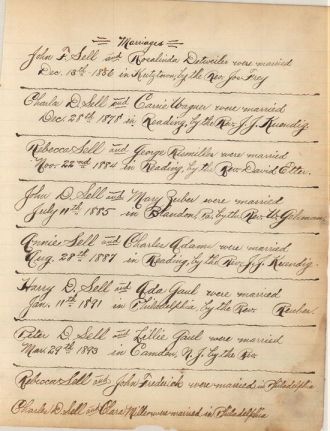 Marriages
John F. Sell and Rosalinda Detweiler were married
Dec. 13th 1856 in Kutztown, by the Rev. Jon. Frey
Charls D. Sell and Carrie Wagner were married
Dec. 25th 1878 in Reading, by the Rev. J. J. Kuendig
Rebecca Sell and George Rismiller were married
Nov. 22nd 1884 in Reading, by the Rev. David Etter.
John D. Sell and Mary Zuber were married
July 11th 1885 in Blandon, Pa. by the Rev. W.
Annie Sell and Charles Adams were married
Aug. 28th 1887 in Reading, by the Rev. J. J. Kuendig.
Harry D. Sell and Ada Gaul were married
Jan. 11th 1891 in Philadelphia, by the Rev.
Peter D. Sell and Lillie Gaul were married
Mar. 29th 1893 in Camden, N. J. by the Rev
Rebecca Sell and John Frederick were married in Philadelphia
Charles D. Sell and Clara Miller were married in Philadelphia